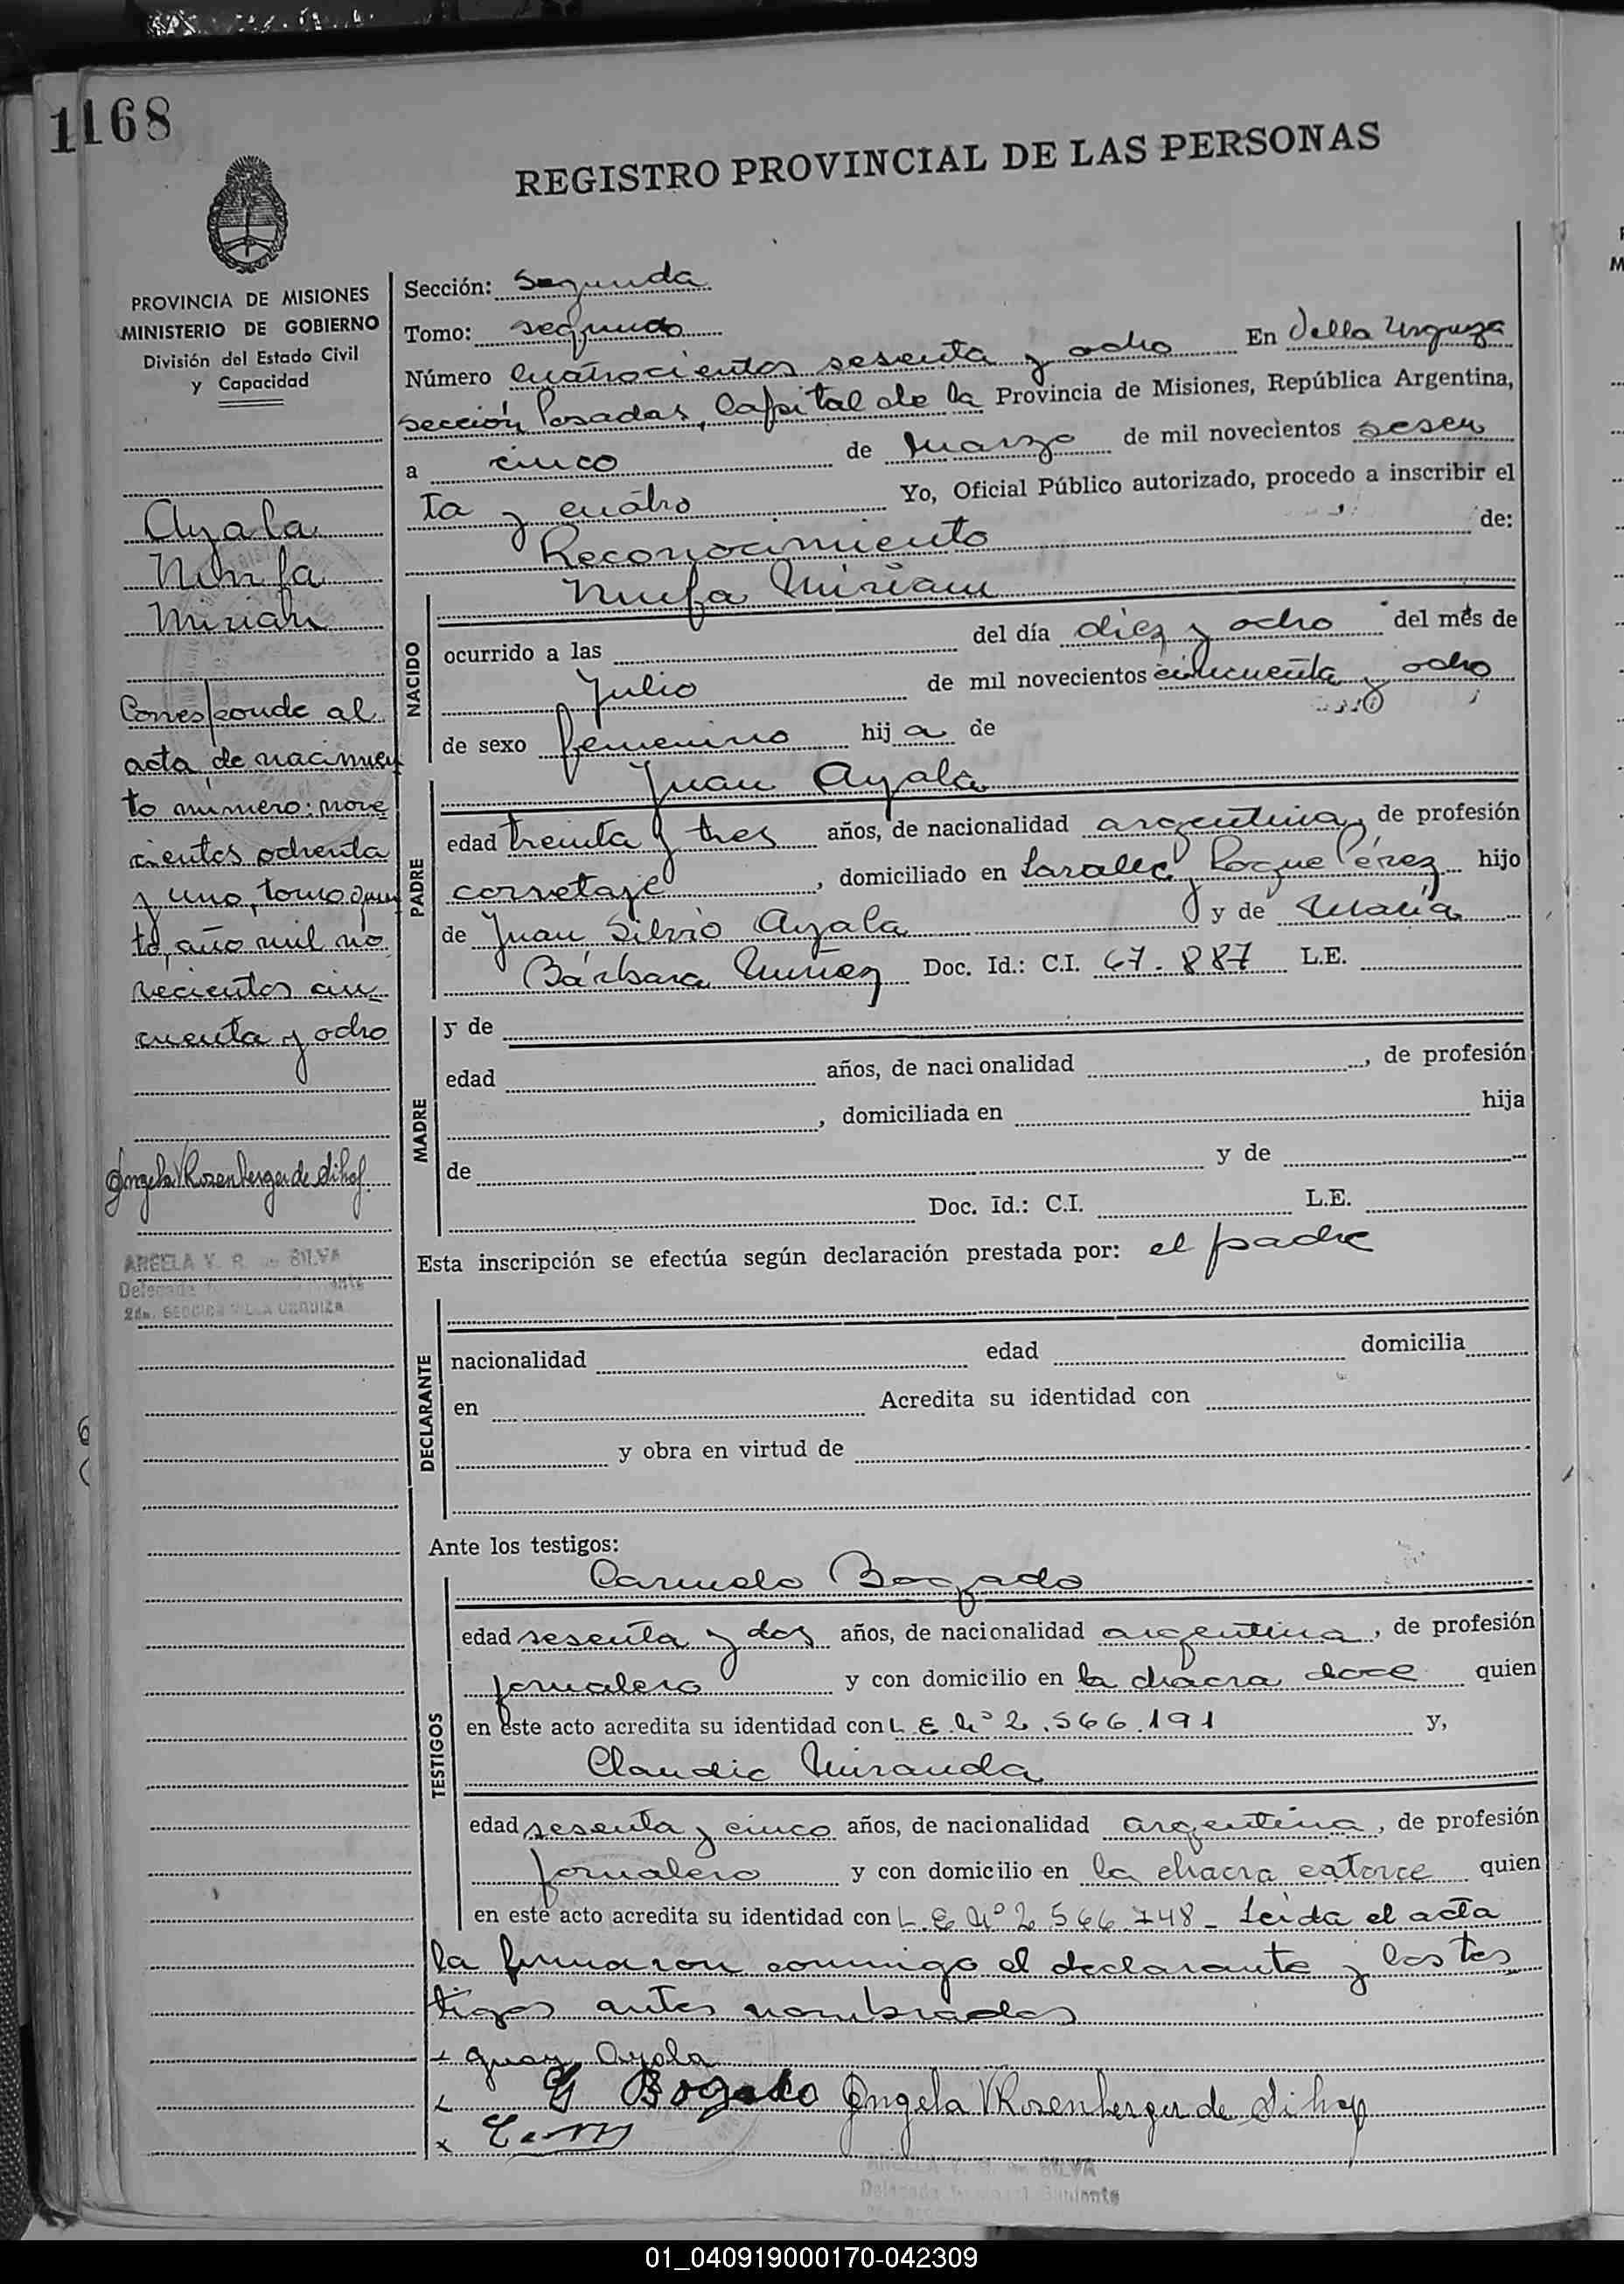 1168
REGISTRO PROVINCIAL DE LAS PERSONAS
PROVINCIA DE MISIONES
MINISTERIO DE GOBIERNO
División del Estado Civil
y Capacidad
Ayala
Ninfa
Miriam
Corresponde al
acta de nacimien
to número: nove
cientos ochenta
y uno, tomo quin
to, año mil no
vecientos cin
cuenta y ocho
Angela V Rosenberger de Silva
ANGELA V. R. de SILVA
Delegada
2da. SECCION VILLA URQUIZA
Sección: Segunda
Tomo: segundo
Número cuatrocientos sesenta y ocho En Villa Urquiza
sección Posadas, Capital de la Provincia de Misiones, República Argentina,
a cinco de Marzo de mil novecientos sesen
ta y cuatro Yo, Oficial Público autorizado, procedo a inscribir el
Reconocimiento de:
NACIDO
Ninfa Miriam
ocurrido a las del día diez y ocho del mes de
Julio de mil novecientos cincuenta y ocho
de sexo femenino hij a de
PADRE
Juan Ayala
edad treinta y tres años, de nacionalidad argentina, de profesión
corretaje, domiciliado en Roque Pérez hijo
de Juan Silvio Ayala y de María
Bárbara Nuñez Doc. Id.: C.I. 67.887 L.E.
MADRE
y de
edad años, de nacionalidad , de profesión
, domiciliada en hija
de y de
Doc. Id.: C.I. L.E.
Esta inscripción se efectúa según declaración prestada por: el padre
DECLARANTE
nacionalidad edad domicilia
en Acredita su identidad con
y obra en virtud de
Ante los testigos:
TESTIGOS
Carmelo Bogado
edad sesenta y dos años, de nacionalidad argentina, de profesión
jornalero y con domicilio en la chacra doce quien
en este acto acredita su identidad con L.E. Nº 2.566.191 y,
Claudio Miranda
edad sesenta y cinco años, de nacionalidad argentina, de profesión
jornalero y con domicilio en la chacra catorce quien
en este acto acredita su identidad con L.E. Nº 2.566.748 - Leida el acta
la firmaron conmigo el declarante y los tes
tigos antes nombrados
x Juan Ayala
x Bogado Angela V Rosenberger de Silva
x
ANGELA V. R. de SILVA
Delegada
01_040919000170-042309